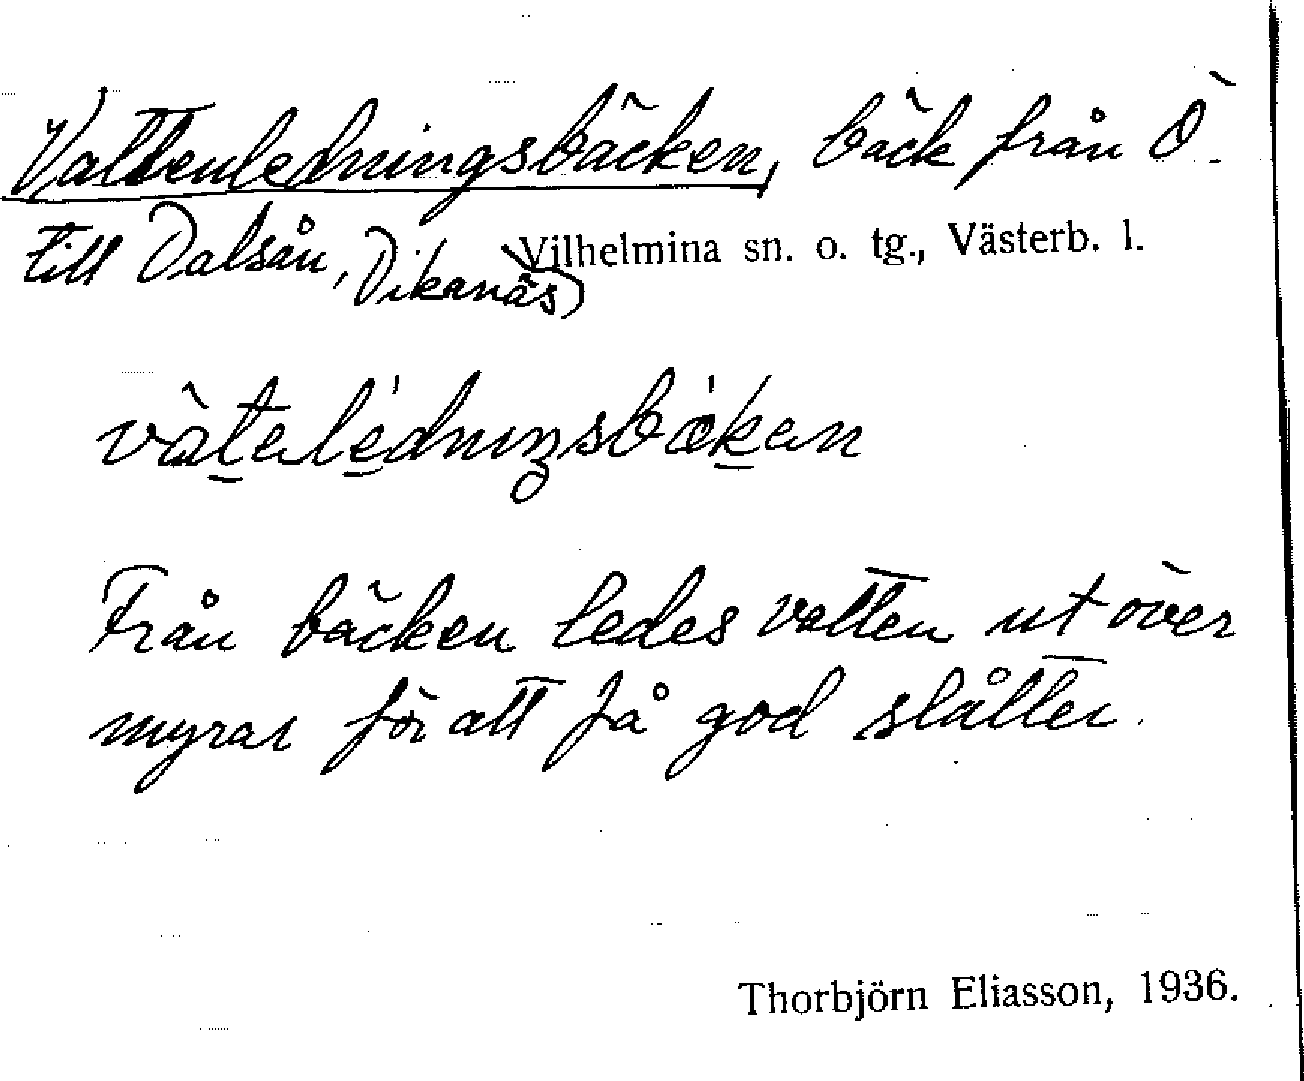 Vattenledningsbäcken, bäck från Ö.
till Dalsån, Dikanäs
Vilhelmina sn. o. tg., Västerb. l.
vàtalédniŋsbækan
Från bäcken ledes vatten ut över
myrar för att få god slåtter.
Thorbjörn Eliasson, 1936.